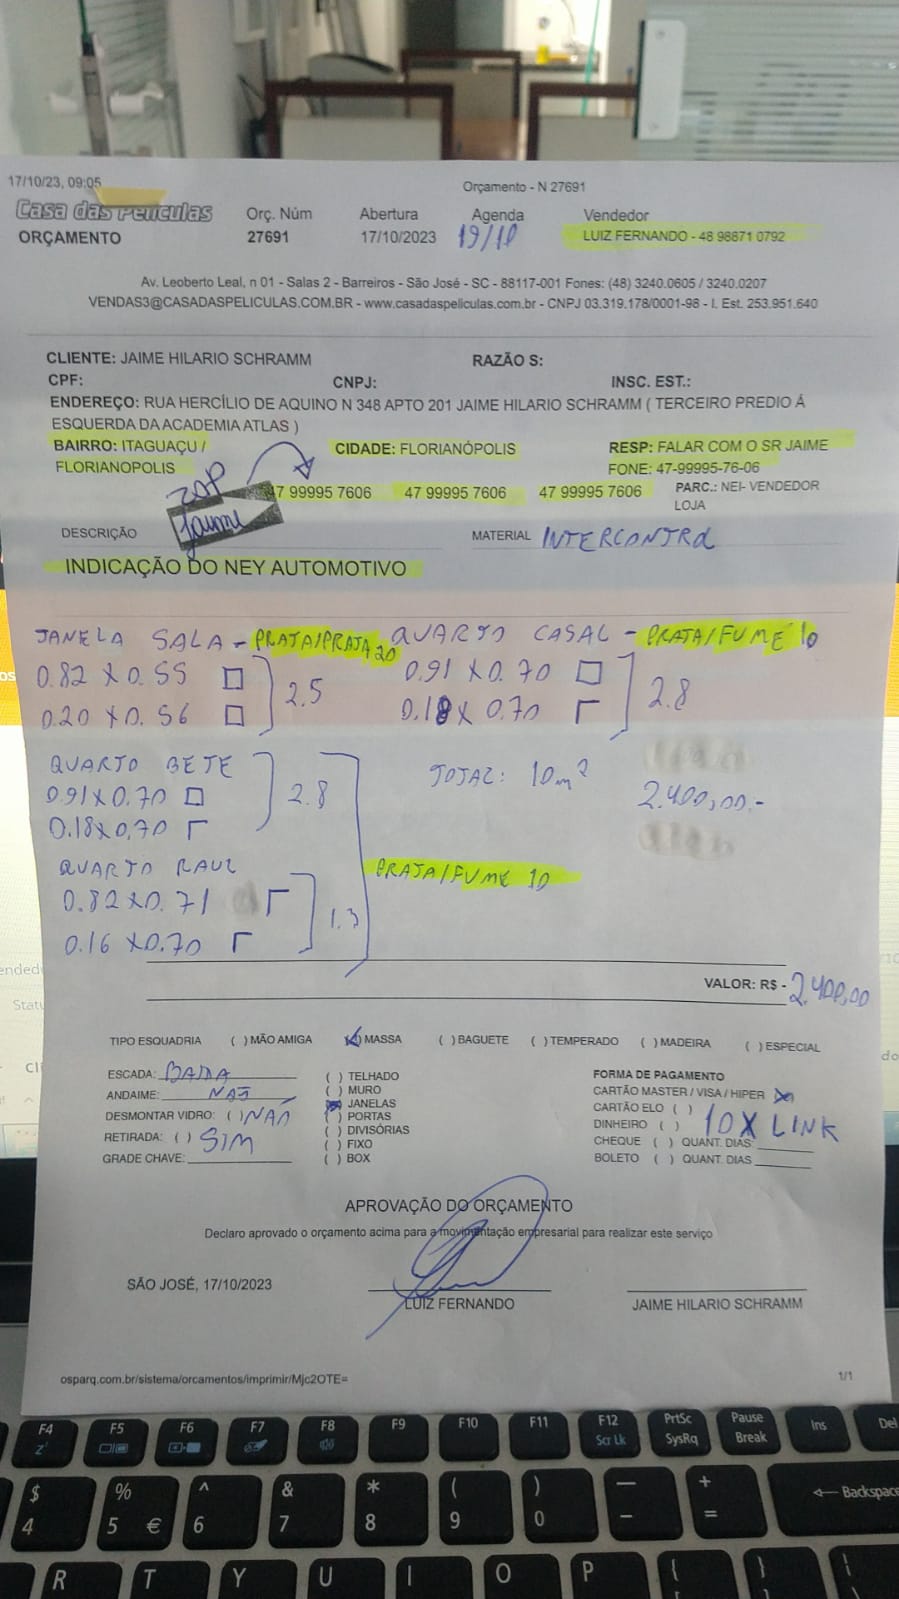 17/10/23, 09:05
Orçamento - N 27691
Casa das Películas
Orç. Núm
Abertura
Agenda
Vendedor
ORÇAMENTO
27691
17/10/2023
19/10
LUIZ FERNANDO - 48 98871 0792
Av. Leoberto Leal, n 01 - Salas 2 - Barreiros - São José - SC - 88117-001 Fones: (48) 3240.0605 / 3240.0207
VENDAS3@CASADASPELICULAS.COM.BR - www.casadaspeliculas.com.br - CNPJ 03.319.178/0001-98 - I. Est. 253.951.640
CLIENTE: JAIME HILARIO SCHRAMM
RAZÃO S:
CPF:
CNPJ:
INSC. EST.:
ENDEREÇO: RUA HERCÍLIO DE AQUINO N 348 APTO 201 JAIME HILARIO SCHRAMM ( TERCEIRO PREDIO Á
ESQUERDA DA ACADEMIA ATLAS )
BAIRRO: ITAGUAÇU /
FLORIANOPOLIS
CIDADE: FLORIANÓPOLIS
RESP: FALAR COM O SR JAIME
FONE: 47-99995-76-06
ZAP
Jaime
47 99995 7606
47 99995 7606
47 99995 7606
PARC.: NEI- VENDEDOR
LOJA
DESCRIÇÃO
MATERIAL INTERCONTROL
INDICAÇÃO DO NEY AUTOMOTIVO
JANELA SALA - PRATA/PRATA 20
0.82 X 0.55
0.20 X 0.56
2.5
QUARTO CASAL - PRATA/FUME 10
0.91 X 0.70
0.18 X 0.70
2.8
QUARTO BETE
0.91 X 0.70
0.18 X 0.70
2.8
TOTAL: 10m²
2.400,00.-
QUARTO RAUL
0.82 X 0.71
0.16 X 0.70
1.3
PRATA/FUME 10
VALOR: R$ - 2.400,00
TIPO ESQUADRIA ( ) MÃO AMIGA (X) MASSA ( ) BAGUETE ( ) TEMPERADO ( ) MADEIRA ( ) ESPECIAL
ESCADA:
ANDAIME: NÃO
DESMONTAR VIDRO: ( ) NÃO
RETIRADA: ( ) SIM
GRADE CHAVE:
( ) TELHADO
( ) MURO
(X) JANELAS
( ) PORTAS
( ) DIVISÓRIAS
( ) FIXO
( ) BOX
FORMA DE PAGAMENTO
CARTÃO MASTER / VISA / HIPER (X)
CARTÃO ELO ( )
DINHEIRO ( )
10X LINK
CHEQUE ( ) QUANT. DIAS:
BOLETO ( ) QUANT. DIAS
APROVAÇÃO DO ORÇAMENTO
Declaro aprovado o orçamento acima para a movimentação empresarial para realizar este serviço
SÃO JOSÉ, 17/10/2023
LUIZ FERNANDO
JAIME HILARIO SCHRAMM
osparq.com.br/sistema/orcamentos/imprimir/Mjc2OTE=
1/1
F4 F5 F6 F7 F8 F9 F10 F11 F12 Scr Lk PrtSc SysRq Pause Break Ins Del
$ 4 % 5 € ^ 6 & 7 * 8 ( 9 ) 0 — - + = Backspace
R T Y U I O P { [ } ]